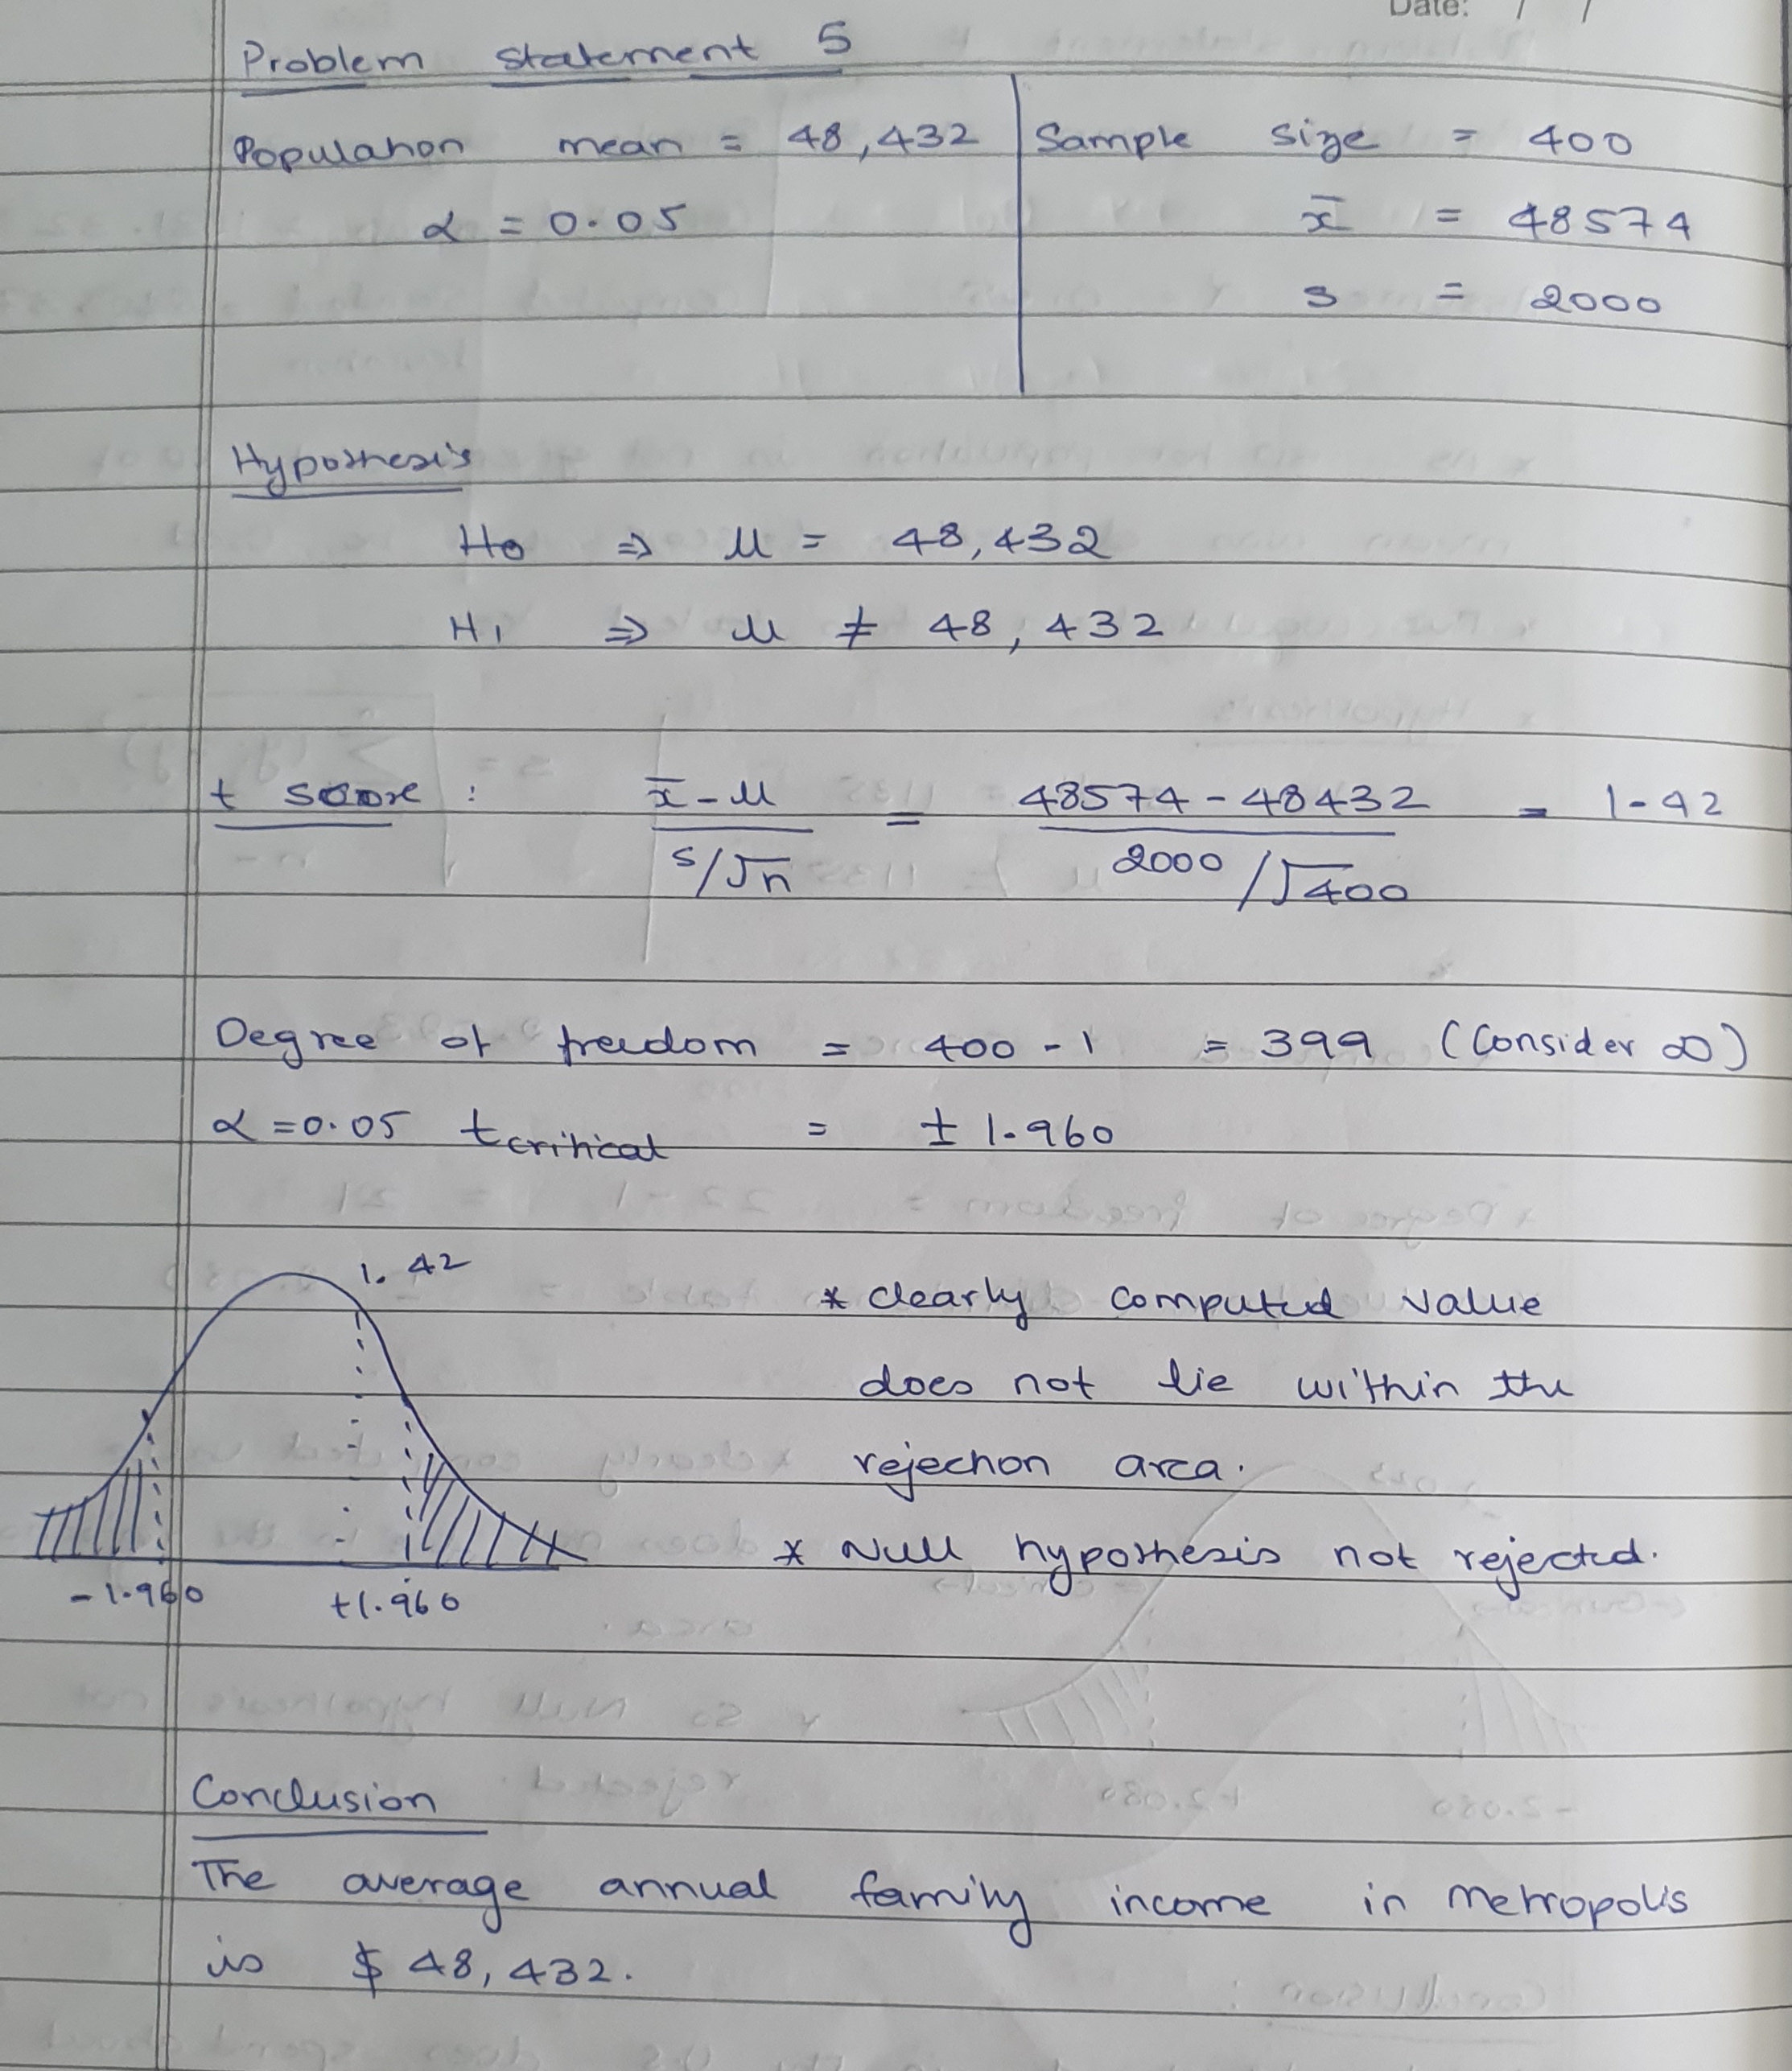 Date: / /
Problem statement 5
Population mean = 48,432
α = 0.05
Sample size = 400
x̄ = 48574
s = 2000
Hypothesis
H0 ⇒ μ = 48,432
H1 ⇒ μ ≠ 48,432
t score : x̄-μ / s/√n = 48574-48432 / 2000/√400 = 1.42
Degree of freedom = 400-1 = 399 (Consider ∞)
α=0.05 tcritical = ± 1.960
1.42
-1.960 +1.960
* clearly computed value
does not lie within the
rejection area.
* Null hypothesis not rejected.
Conclusion
The average annual family income in Metropolis
is $ 48,432.